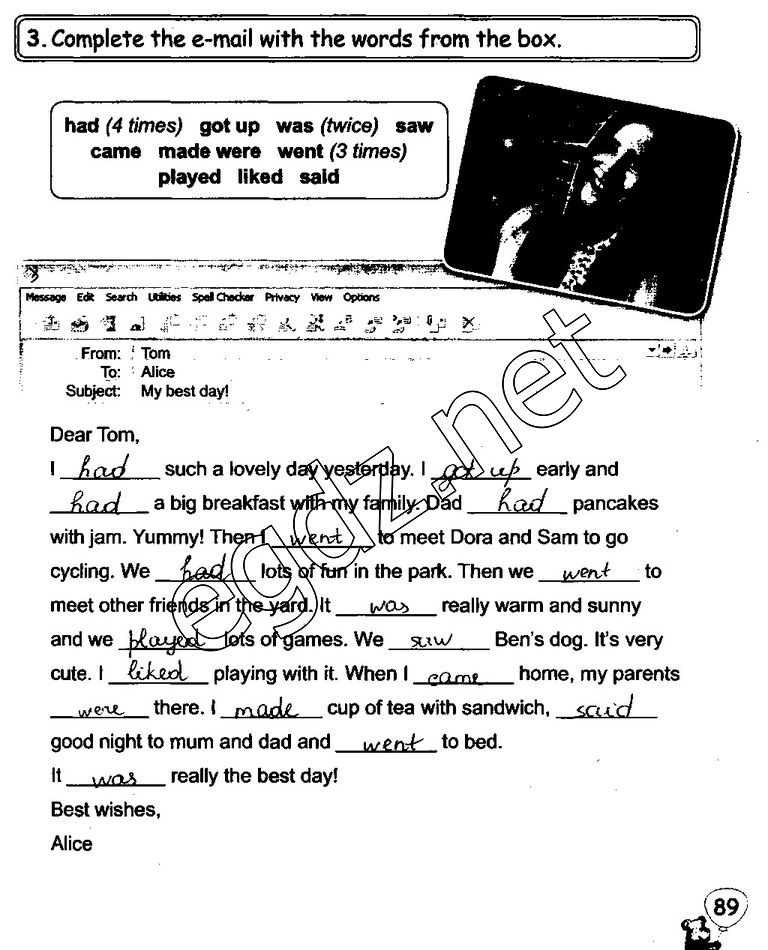 3. Complete the e-mail with the words from the box.
had (4 times) got up was (twice) saw
came made were went (3 times)
played liked said
Message Edit Search Utilities Spell Checker Privacy View Options
From: Tom
To: Alice
Subject: My best day!
Dear Tom,
I had such a lovely day yesterday. I got up early and
had a big breakfast with my family. Dad had pancakes
with jam. Yummy! Then I went to meet Dora and Sam to go
cycling. We had lots of fun in the park. Then we went to
meet other friends in the yard. It was really warm and sunny
and we played lots of games. We saw Ben's dog. It's very
cute. I liked playing with it. When I came home, my parents
were there. I made cup of tea with sandwich, said
good night to mum and dad and went to bed.
It was really the best day!
Best wishes,
Alice
89
egdz.net